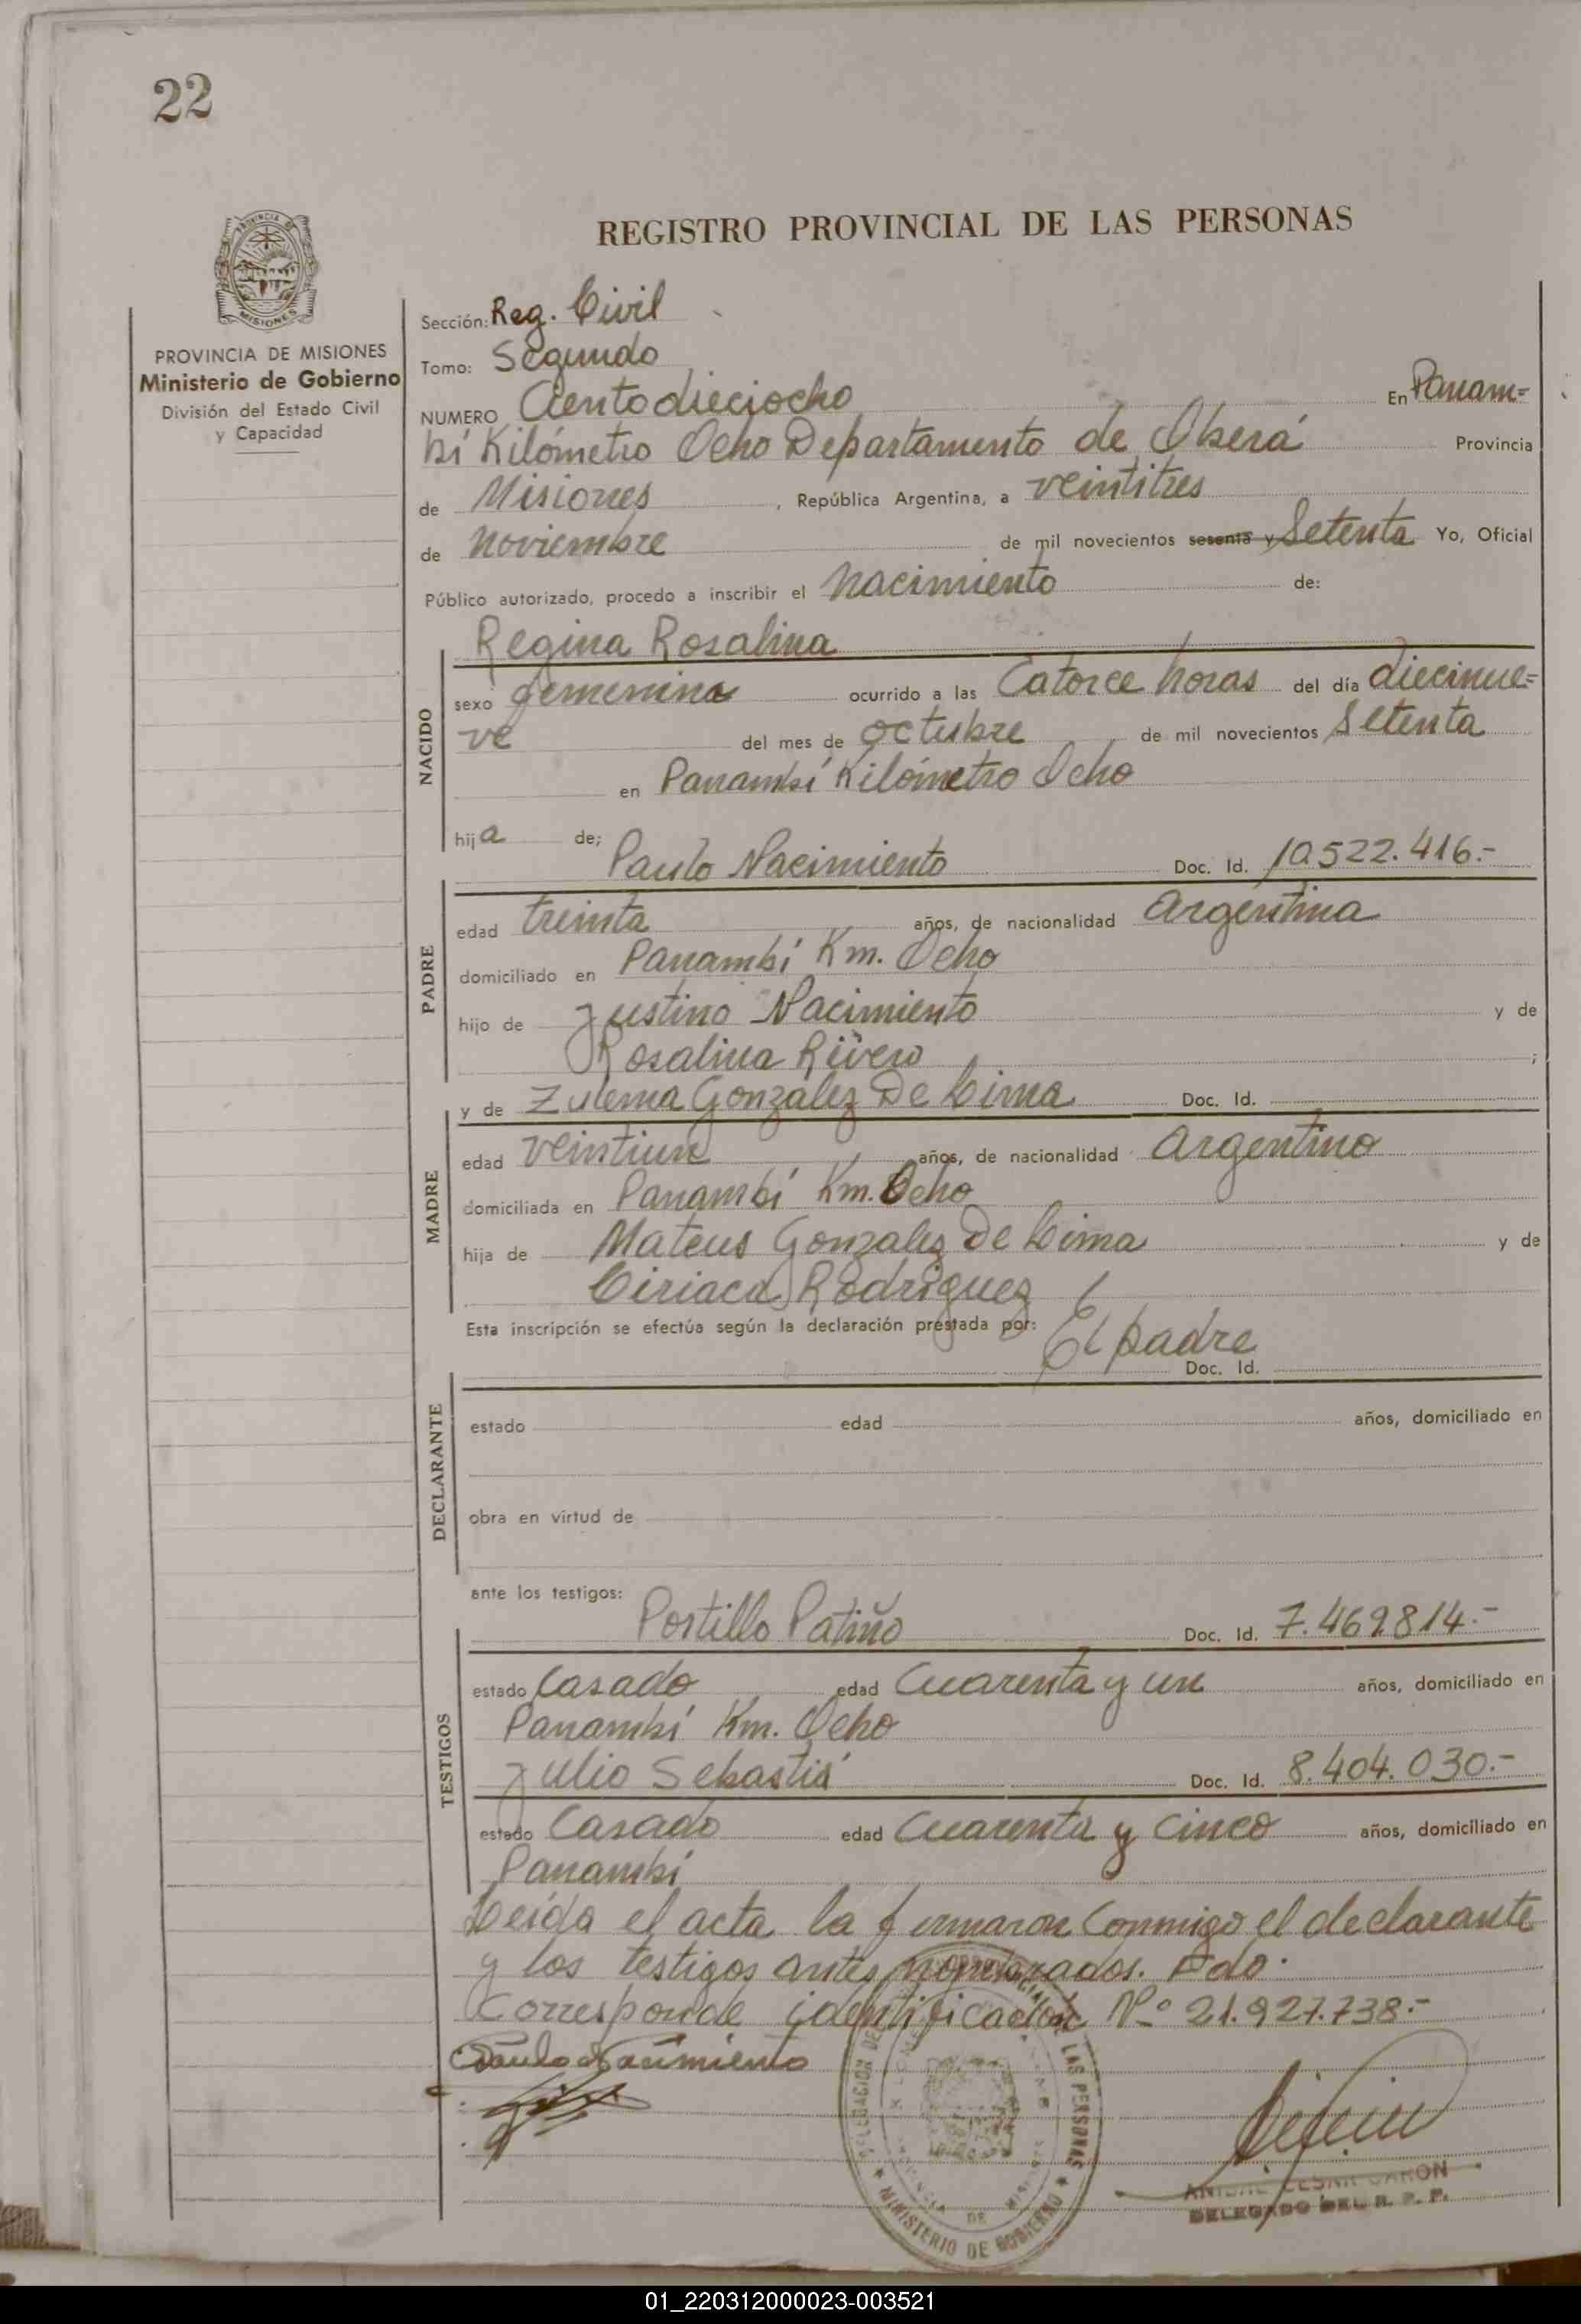 22
REGISTRO PROVINCIAL DE LAS PERSONAS
PROVINCIA DE
MISIONES
PROVINCIA DE MISIONES
Ministerio de Gobierno
División del Estado Civil
y Capacidad
Sección: Reg. Civil
Tomo: Segundo
NUMERO Cientodieciocho En Panam=
bí Kilómetro Ocho Departamento de Oberá Provincia
de Misiones, República Argentina, a veintitres
de noviembre de mil novecientos sesenta y Setenta Yo, Oficial
Público autorizado, procedo a inscribir el nacimiento de:
Regina Rosalina
NACIDO
sexo femenino ocurrido a las Catorce horas del día diecinue=
ve del mes de octubre de mil novecientos Setenta
en Panambí Kilómetro Ocho
hija de; Paulo Nacimiento Doc. Id. 10.522.416.-
PADRE
edad treinta años, de nacionalidad Argentina
domiciliado en Panambí Km. Ocho
hijo de Justino Nacimiento y de
Rosalina Rivero ;
y de Zulema Gonzalez De Lima Doc. Id.
MADRE
edad veintiun años, de nacionalidad Argentino
domiciliada en Panambí Km. Ocho
hija de Mateus Gonzalez De Lima y de
Ciriaca Rodriguez
Esta inscripción se efectúa según la declaración prestada por: El padre
Doc. Id.
DECLARANTE
estado edad años, domiciliado en
obra en virtud de
ante los testigos:
Portillo Patiño Doc. Id. 7.469814.-
TESTIGOS
estado Casado edad Cuarenta y un años, domiciliado en
Panambí Km. Ocho
Julio Sebastiá Doc. Id. 8.404.030.-
estado Casado edad Cuarenta y cinco años, domiciliado en
Panambí
Leída el acta la firmaron Conmigo el declarante
y los testigos antes nombrados. Fdo.
Corresponde identificación Nº 21.927.738.-
Paulo Nacimiento
LAS PERSONAS
MINISTERIO DE GOBIERNO
ANIBAL CESAR
DELEGADO DEL R. P. P.
01_220312000023-003521